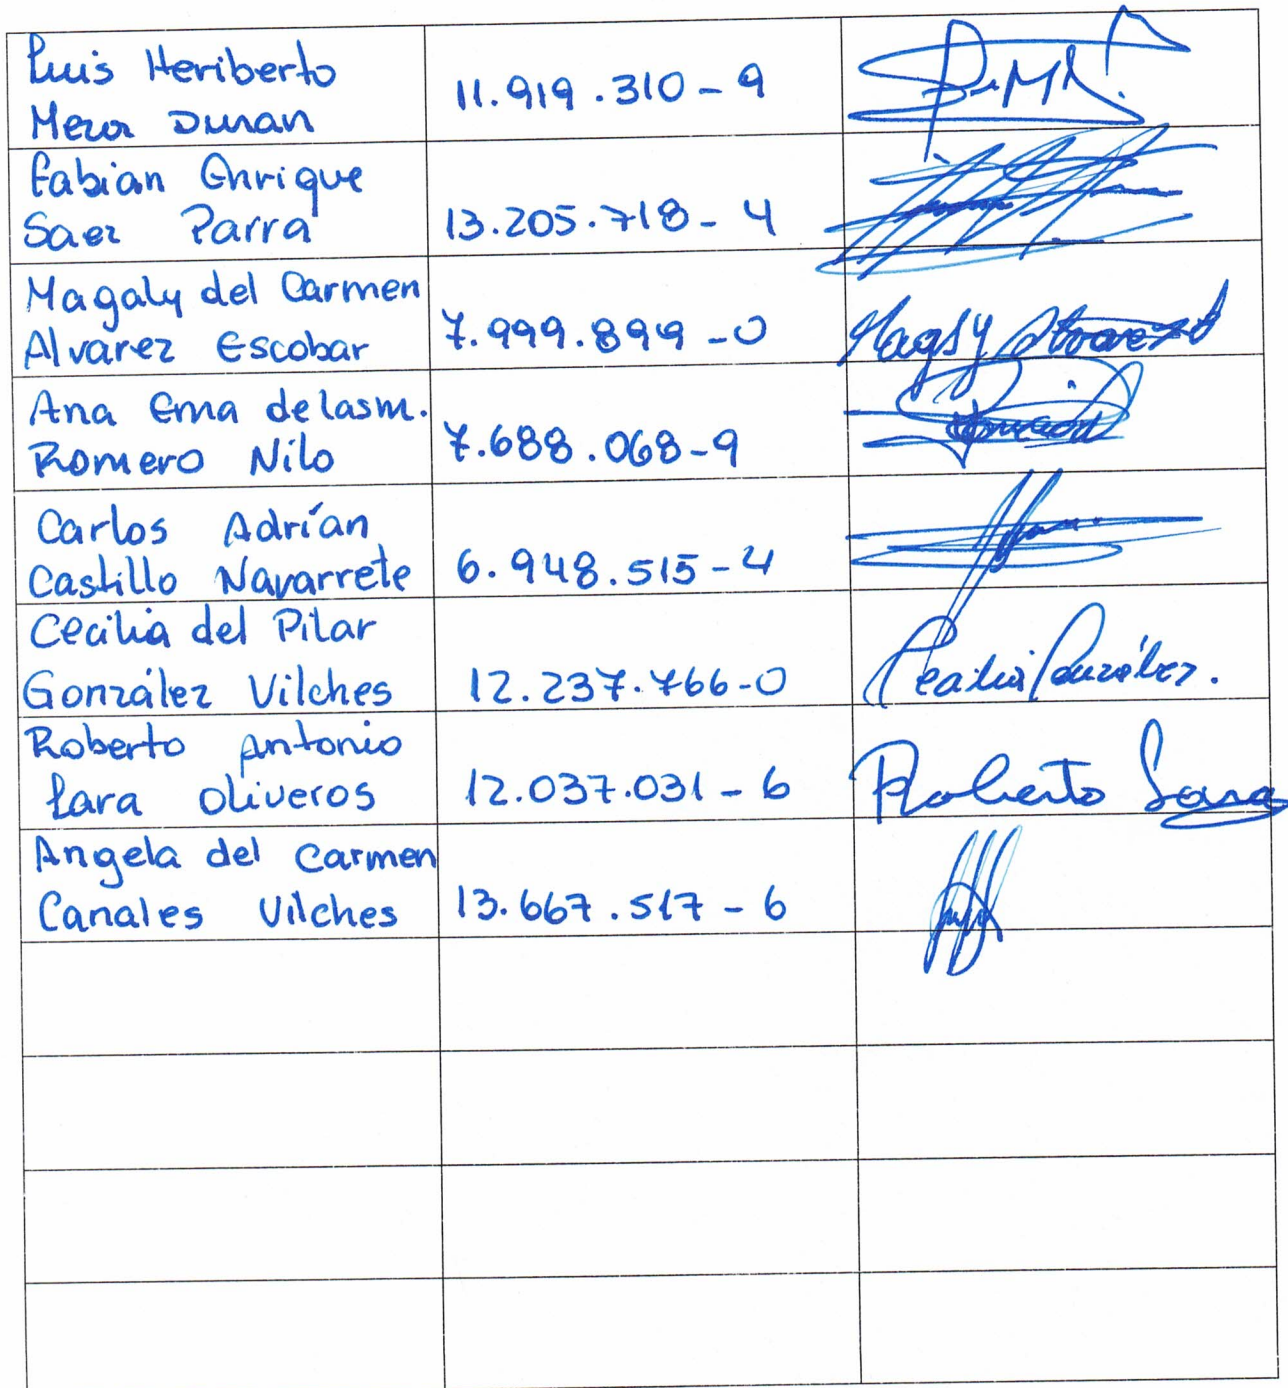 Luis Heriberto
Meza Duran
11.919.310-9
Fabian Enrique
Saez Parra
13.205.718-4
Magaly del Carmen
Alvarez Escobar
7.999.899-0
Magaly Alvarez
Ana Ema de las m.
Romero Nilo
7.688.068-9
Carlos Adrían
Castillo Navarrete
6.948.515-4
Cecilia del Pilar
González Vilches
12.237.766-0
Cecilia González.
Roberto Antonio
Lara Oliveros
12.037.031-6
Roberto Lara
Angela del Carmen
Canales Vilches
13.667.517-6